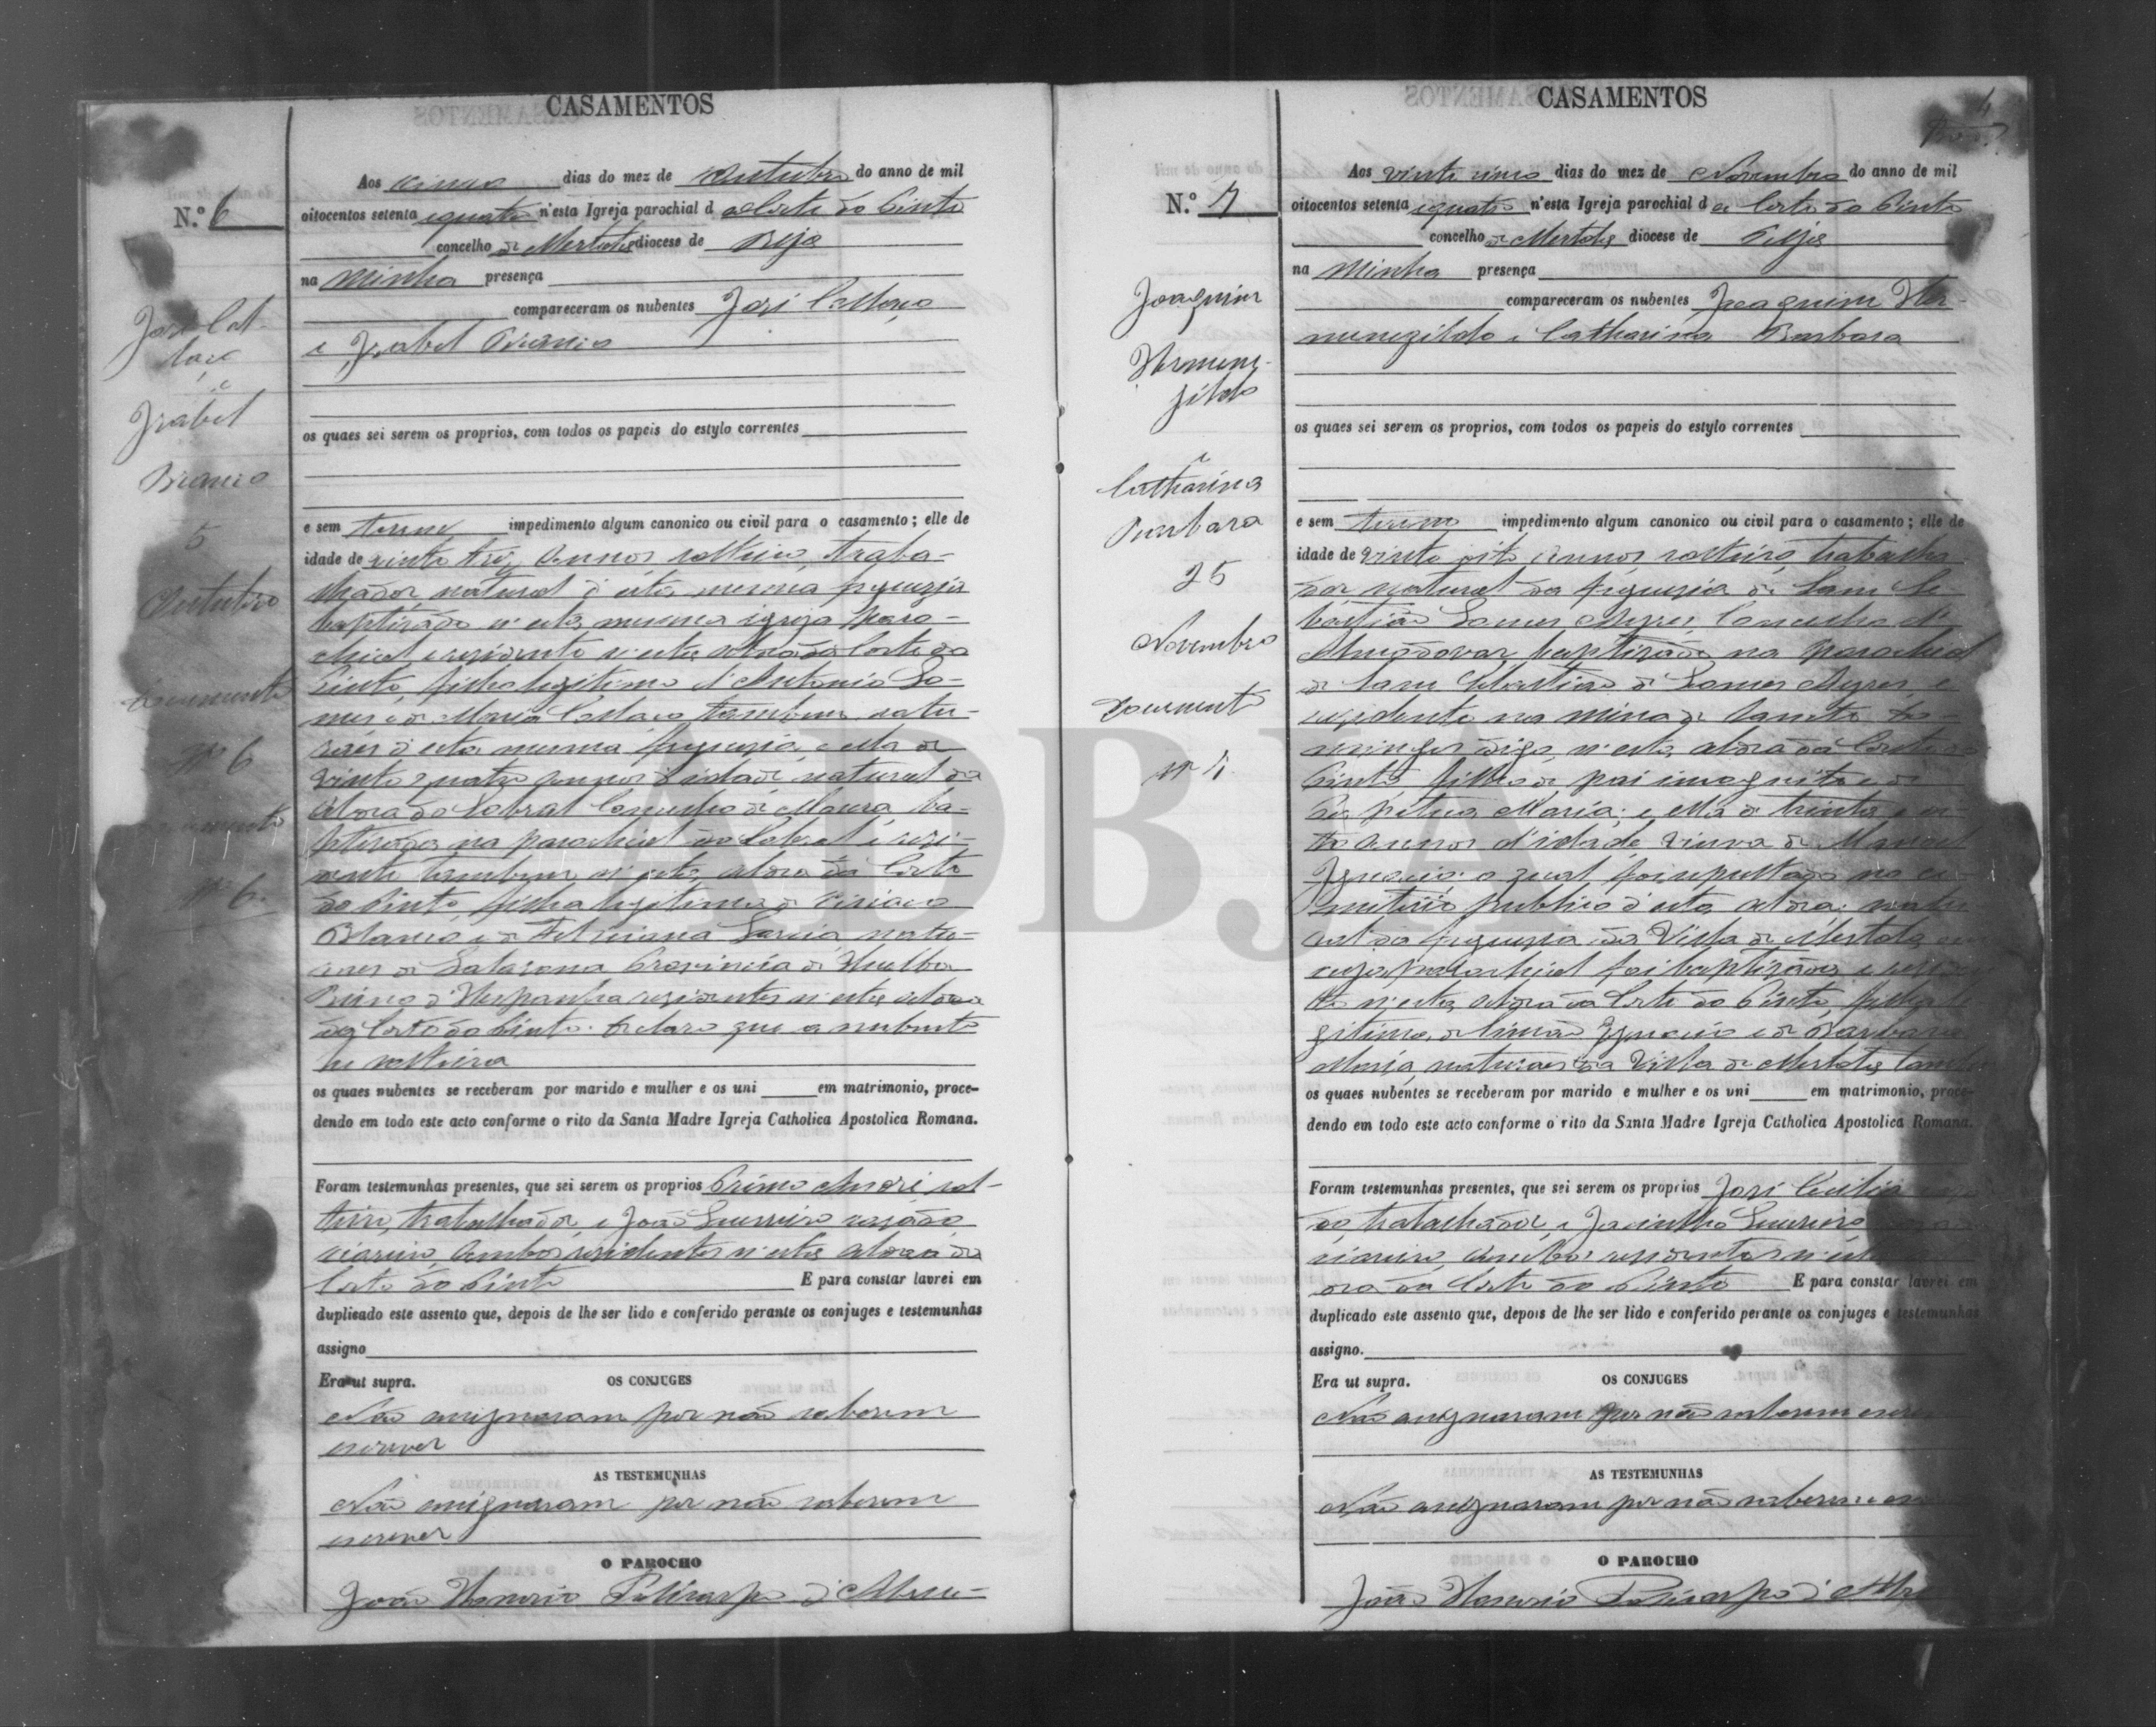 CASAMENTOS
N.º 6
José Col-
laço
e
Izabel
Branco
5
Outubro
Documento
Nº 6
Nº 6.
Aos cinco dias do mez de Outubro do anno de mil
oitocentos setenta e quatro n'esta Igreja parochial d a Corte do Pinto
concelho de Mertola diocese de Beja
na minha presença
compareceram os nubentes José Collaço
e Izabel Branco
os quaes sei serem os proprios, com todos os papeis do estylo correntes
e sem terem impedimento algum canonico ou civil para o casamento; elle de
idade de vinte trez annos, solteiro, traba-
lhador, natural d'esta mesma freguezia
baptizado n'esta mesma igreja paro-
chial e residente n'esta aldea da Corte do
Pinto, filho legitimo d'Antonio Go-
mes e de Maria Collaço tambem natu-
raes d'esta mesma freguezia, e ella de
vinte quatro annos d'idade, natural da
aldea do Sobral Concelho de Moura, ba-
ptizada na parochial do Sobral e resi-
dente tambem n'esta aldea da Corte
do Pinto, filha legitima de
Blanco e de Feliciana Garcia, natu-
raes de Provincia de Huelba
Reino d'Hespanha residentes n'esta aldea
da Corte do Pinto. Declaro que a nubente
he solteira
os quaes nubentes se receberam por marido e mulher e os uni em matrimonio, proce-
dendo em todo este acto conforme o rito da Santa Madre Igreja Catholica Apostolica Romana.
Foram testemunhas presentes, que sei serem os proprios Primo André sol-
teiro, trabalhador, e João Guerreiro casado
ambos residentes n'esta aldea da
Corte do Pinto E para constar lavrei em
duplicado este assento que, depois de lhe ser lido e conferido perante os conjuges e testemunhas
assigno
Era ut supra.
OS CONJUGES
Não assignaram por não saberem
escrever
AS TESTEMUNHAS
Não assignaram por não saberem
escrever
O PAROCHO
João Honorio Policarpo d'Abreu
CASAMENTOS
4
N.º 7
Joaquim
Hermene-
gildo
e
Catharina
Barbara
25
Novembro
Documento
Aos vinte cinco dias do mez de Novembro do anno de mil
oitocentos setenta e quatro n'esta Igreja parochial d a Corte do Pinto
concelho de Mertola diocese de Beja
na minha presença
compareceram os nubentes Joaquim Her-
menegildo e Catharina Barbara
os quaes sei serem os proprios, com todos os papeis do estylo correntes
e sem terem impedimento algum canonico ou civil para o casamento; elle de
idade de vinte oito annos, solteiro, trabalha
dor, natural da freguezia de Sam Se-
bastião Gomes Ayres, Concelho d'
Almodovar, baptizado na parochial
de Sam Sebastião de Gomes Ayres, e
residente na mina de Santo Do-
mingos digo, n'esta aldea da Corte do
Pinto, filho de pai incognito e de
Maria; e ella de trinta e oi-
to annos d'idade, viuva de Manoel
Ignacio o qual foi sepultado no ce-
miterio publico d'esta aldea: natu
ral da freguezia da Villa de Mertola, em
cuja parochial foi baptizada e residen
te n'esta aldea da Corte do Pinto, filha le
gitima de Simão Ignacio e de Barbara
Maria, naturaes da Villa de Mertola
os quaes nubentes se receberam por marido e mulher e os uni em matrimonio, proce-
dendo em todo este acto conforme o rito da Santa Madre Igreja Catholica Apostolica Romana.
Foram testemunhas presentes, que sei serem os proprios José Cecilia
do, trabalhador, e Jacintho Guerreiro
ambos residentes n'esta
dea da Corte do Pinto E para constar lavrei em
duplicado este assento que, depois de lhe ser lido e conferido perante os conjuges e testemunhas
assigno.
Era ut supra.
OS CONJUGES
Não assignaram por não saberem
AS TESTEMUNHAS
Não assignaram por não saberem
O PAROCHO
João Honorio Policarpo d'Abre
ADBJA